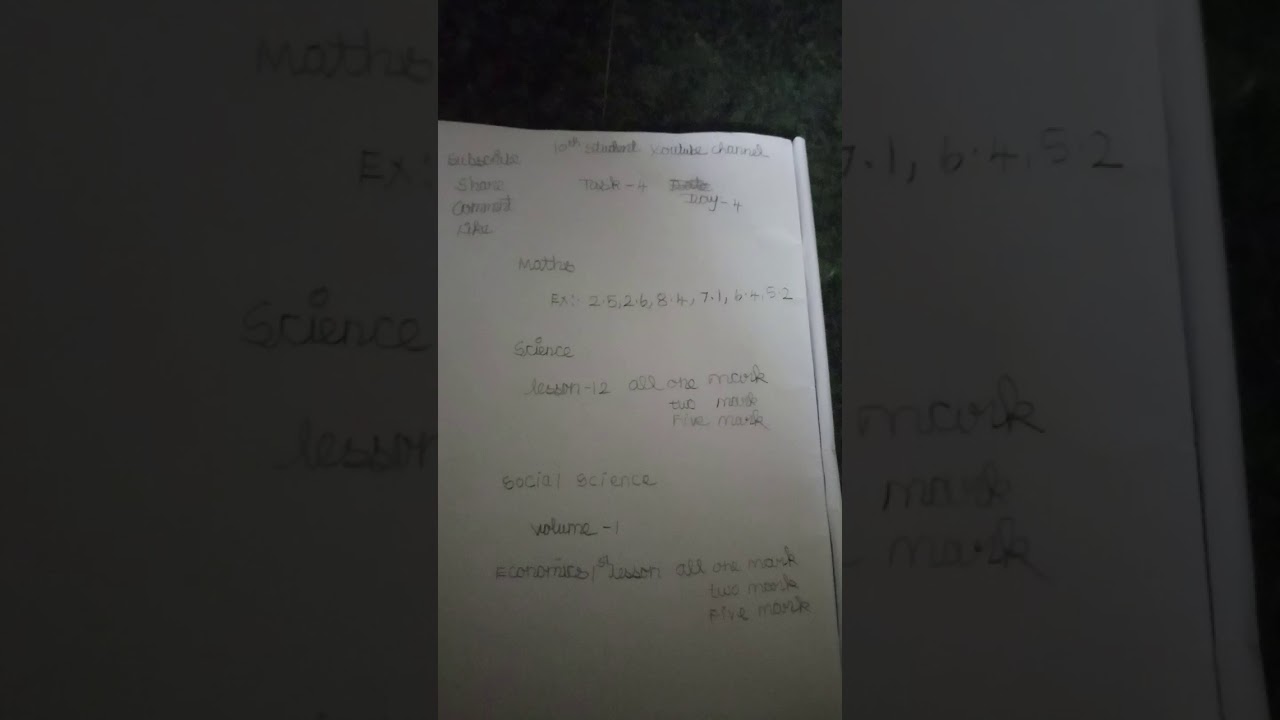 10th Student Youtube channel
Subscribe
Share
Comment
Like
Task - 4
Day - 4
Maths
Ex:- 2.5, 2.6, 8.4, 7.1, 6.4, 5.2
Science
lesson - 12 all one mark
two mark
Five mark
Social Science
volume - 1
Economics 1st lesson all one mark
two mark
Five mark